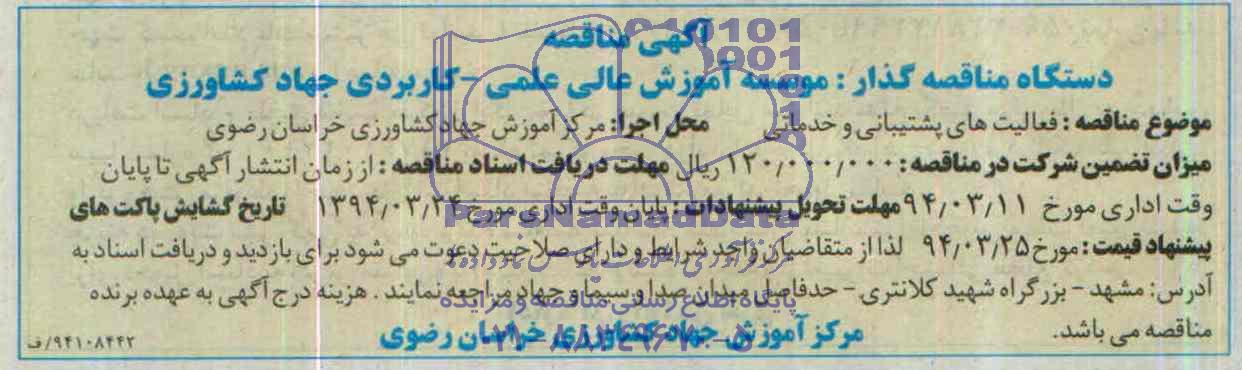 آگهی مناقصه
دستگاه مناقصه گذار : موسسه آموزش عالی علمی -کاربردی جهاد کشاورزی
موضوع مناقصه : فعالیت های پشتیبانی و خدماتی محل اجرا: مرکز آموزش جهاد کشاورزی خراسان رضوی
میزان تضمین شرکت در مناقصه : ۱۲۰/۰۰۰/۰۰۰ ریال مهلت دریافت اسناد مناقصه : از زمان انتشار آگهی تا پایان
وقت اداری مورخ ۹۴/۰۳/۱۱ مهلت تحویل پیشنهادات : پایان وقت اداری مورخ ۱۳۹۴/۰۳/۲۴ تاریخ گشایش پاکت های
پیشنهاد قیمت : مورخ ۹۴/۰۳/۲۵ لذا از متقاضیان واجد شرایط و دارای صلاحیت دعوت می شود برای بازدید و دریافت اسناد به
آدرس: مشهد - بزرگراه شهید کلانتری - حدفاصل میدان صدا و سیما و جهاد مراجعه نمایند . هزینه درج آگهی به عهده برنده
مناقصه می باشد.
مرکز آموزش جهاد کشاورزی خراسان رضوی
۹۴۱۰۸۴۴۲/ف
ParsNamadData
پایگاه اطلاع رسانی مناقصه و مزایده